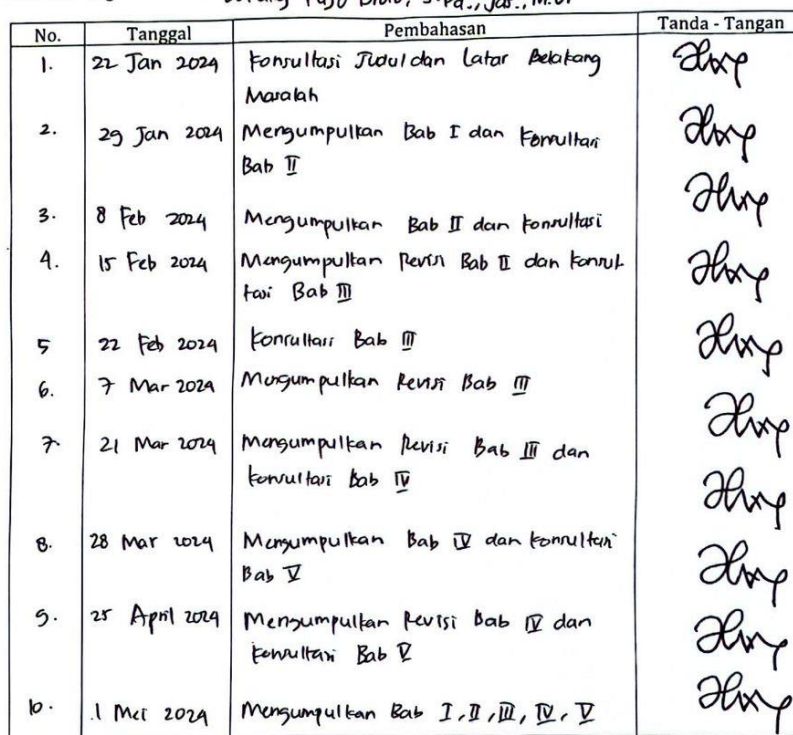 S.Pd., Jas., M.Or
No. Tanggal Pembahasan Tanda - Tangan
1. 22 Jan 2024 Konsultasi Judul dan Latar Belakang
Masalah
2. 29 Jan 2024 Mengumpulkan Bab I dan Konsultasi
Bab II
3. 8 Feb 2024 Mengumpulkan Bab II dan Konsultasi
4. 15 Feb 2024 Mengumpulkan Revisi Bab II dan Konsul
tasi Bab III
5 22 Feb 2024 Konsultasi Bab III
6. 7 Mar 2024 Mengumpulkan Revisi Bab III
7. 21 Mar 2024 Mengumpulkan Revisi Bab III dan
Konsultasi Bab IV
8. 28 Mar 2024 Mengumpulkan Bab IV dan Konsultasi
Bab V
9. 25 April 2024 Mengumpulkan Revisi Bab IV dan
Konsultasi Bab V
10. 1 Mei 2024 Mengumpulkan Bab I, II, III, IV, V